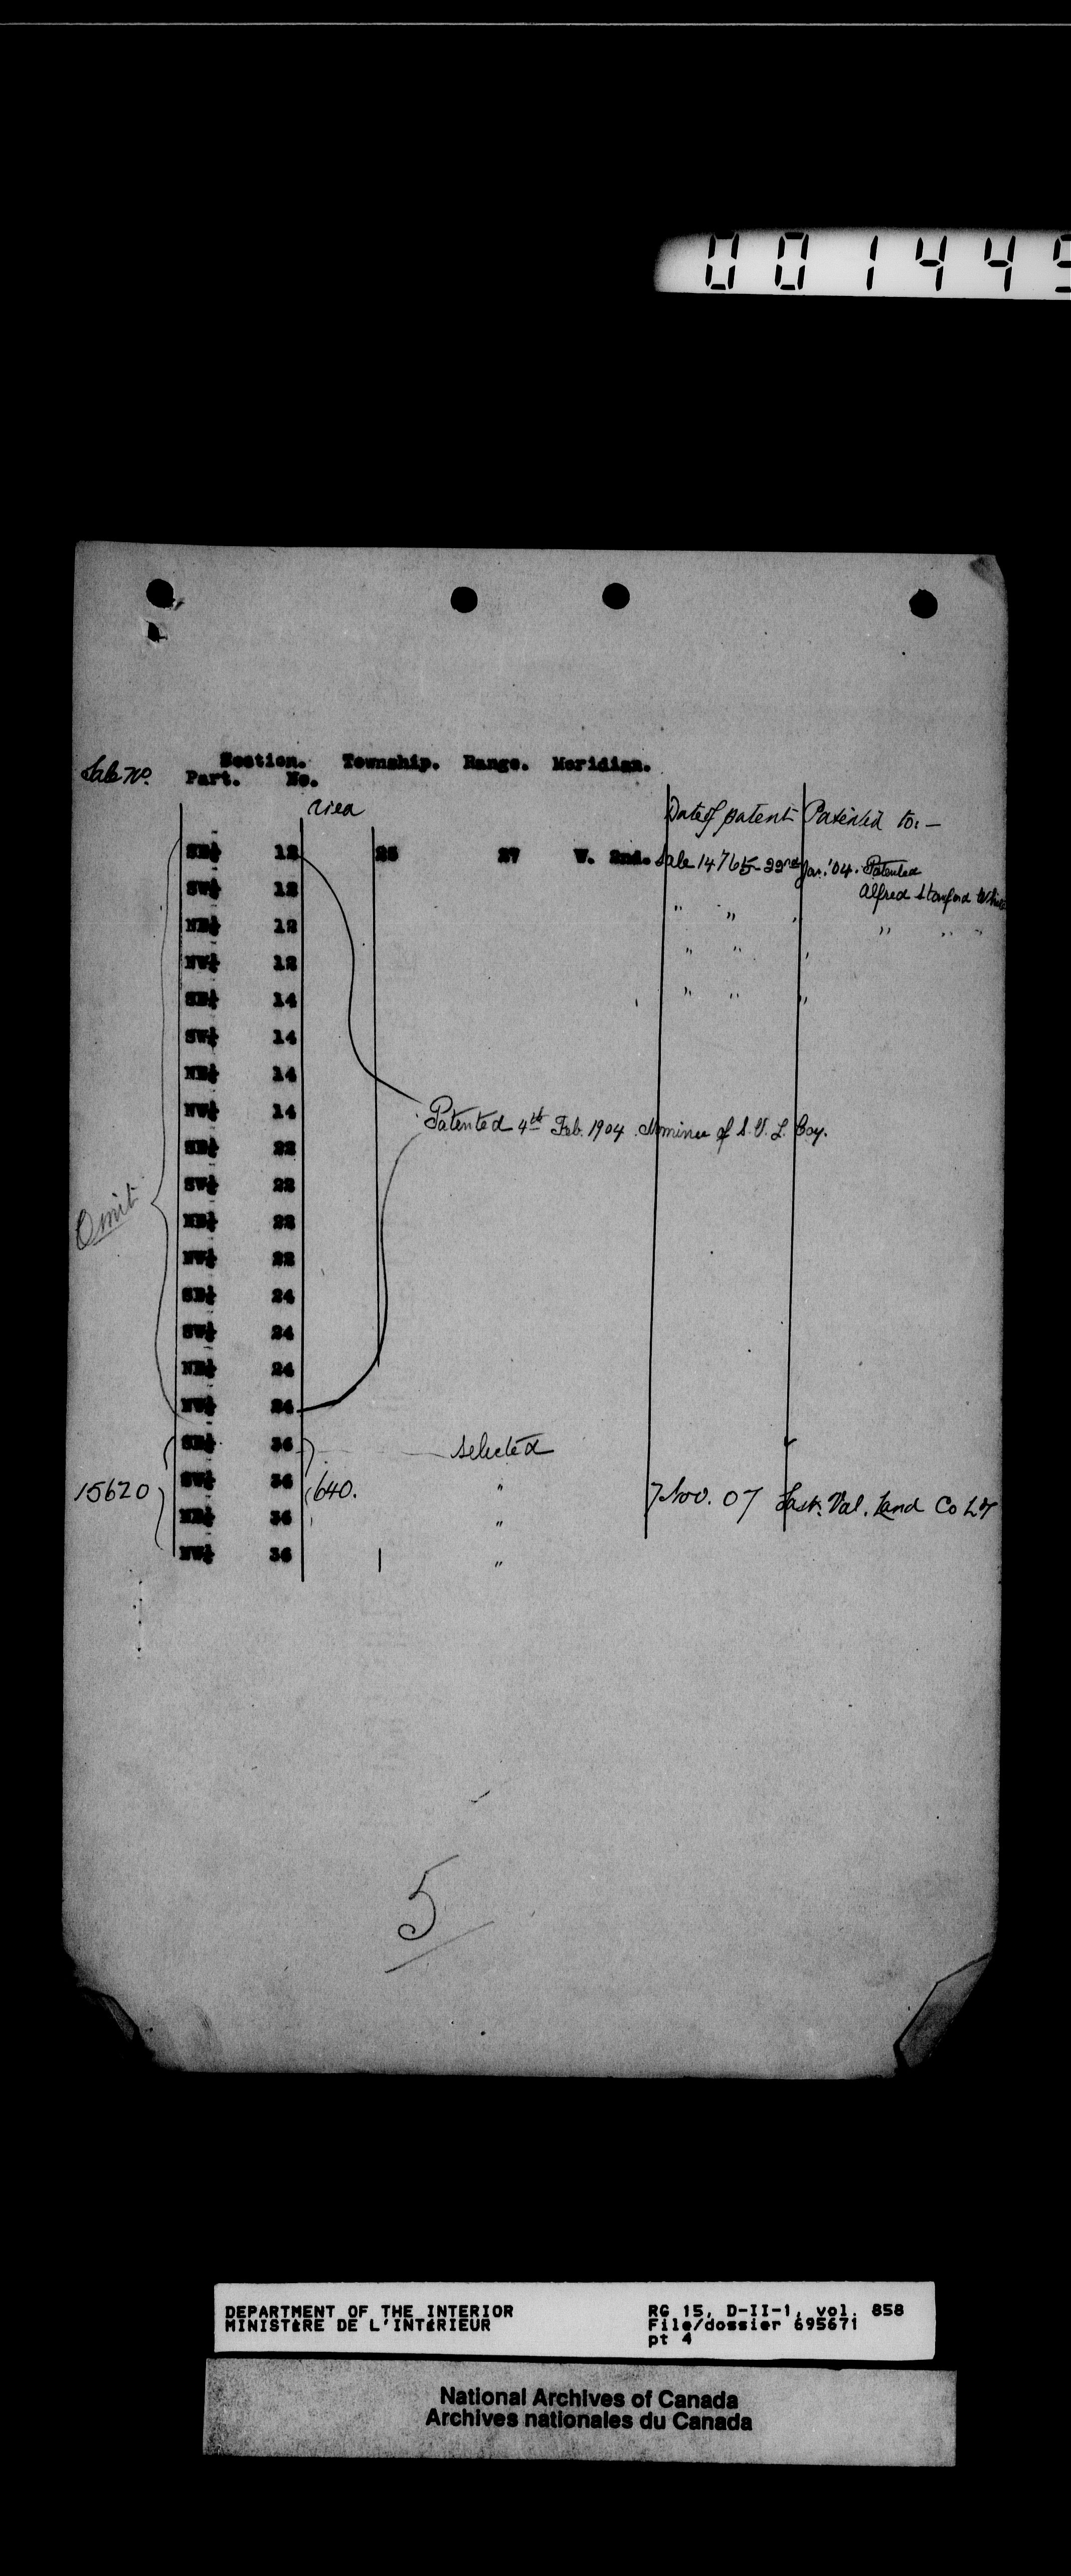 001449
Section. Township. Range. Meridian.
Sale No. Part. No.
Area Date of patent Patented to:—
SE¼ 12 25 27 W. 2nd. Sale 14765 22nd Jan. '04. Patented
SW¼ 12 Alfred Stanford White
NE¼ 12 " " " " " "
NW¼ 12 " " "
SE¼ 14 " " "
SW¼ 14
NE¼ 14
NW¼ 14 Patented 4th Feb. 1904 Nominee of S. V. L. Coy.
SE¼ 22
SW¼ 22
Omit
NE¼ 22
NW¼ 22
SE¼ 24
SW¼ 24
NE¼ 24
NW¼ 24
SE¼ 36 selected
15620 SW¼ 36 640. " 7 Nov. 07 Sask. Val. Land Co Ld
NE¼ 36 "
NW¼ 36 "
5
DEPARTMENT OF THE INTERIOR RG 15, D-II-1, vol. 858
MINISTÈRE DE L'INTÉRIEUR File/dossier 695671
pt 4
National Archives of Canada
Archives nationales du Canada